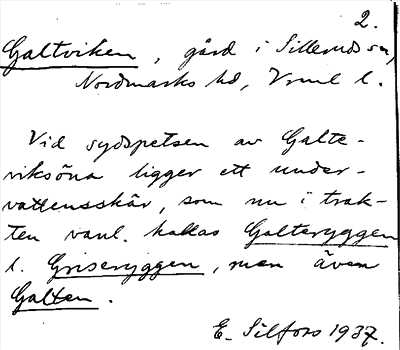 2.
Galtviken, gård i Sillerud sn,
Nordmarks hd, Vrml l.
Vid sydspetsen av Galte-
viksöna ligger ett under-
vattensskär, som nu i trak-
ten vanl. kallas Galteryggen
l. Griseryggen, men även
Galten.
E. Silfors 1937.